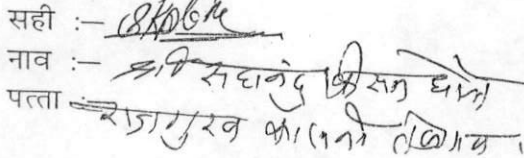 सही :-
नाव :- श्री सदानंद किसन घोले
पत्ता :- राजगुरव कालनी तळेगाव